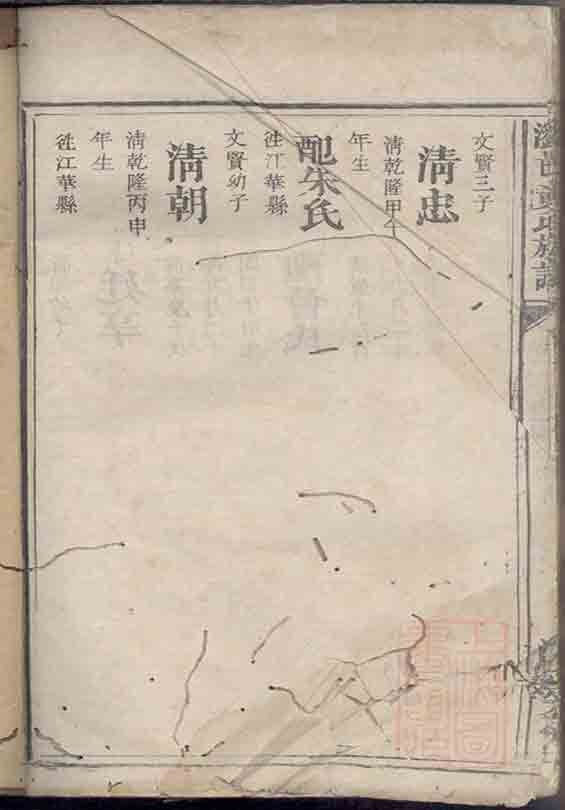 文賢三子
清忠
清乾隆甲午
年生
配朱氏
徃江華縣
文賢幼子
清朝
清乾隆丙申
年生
徃江華縣